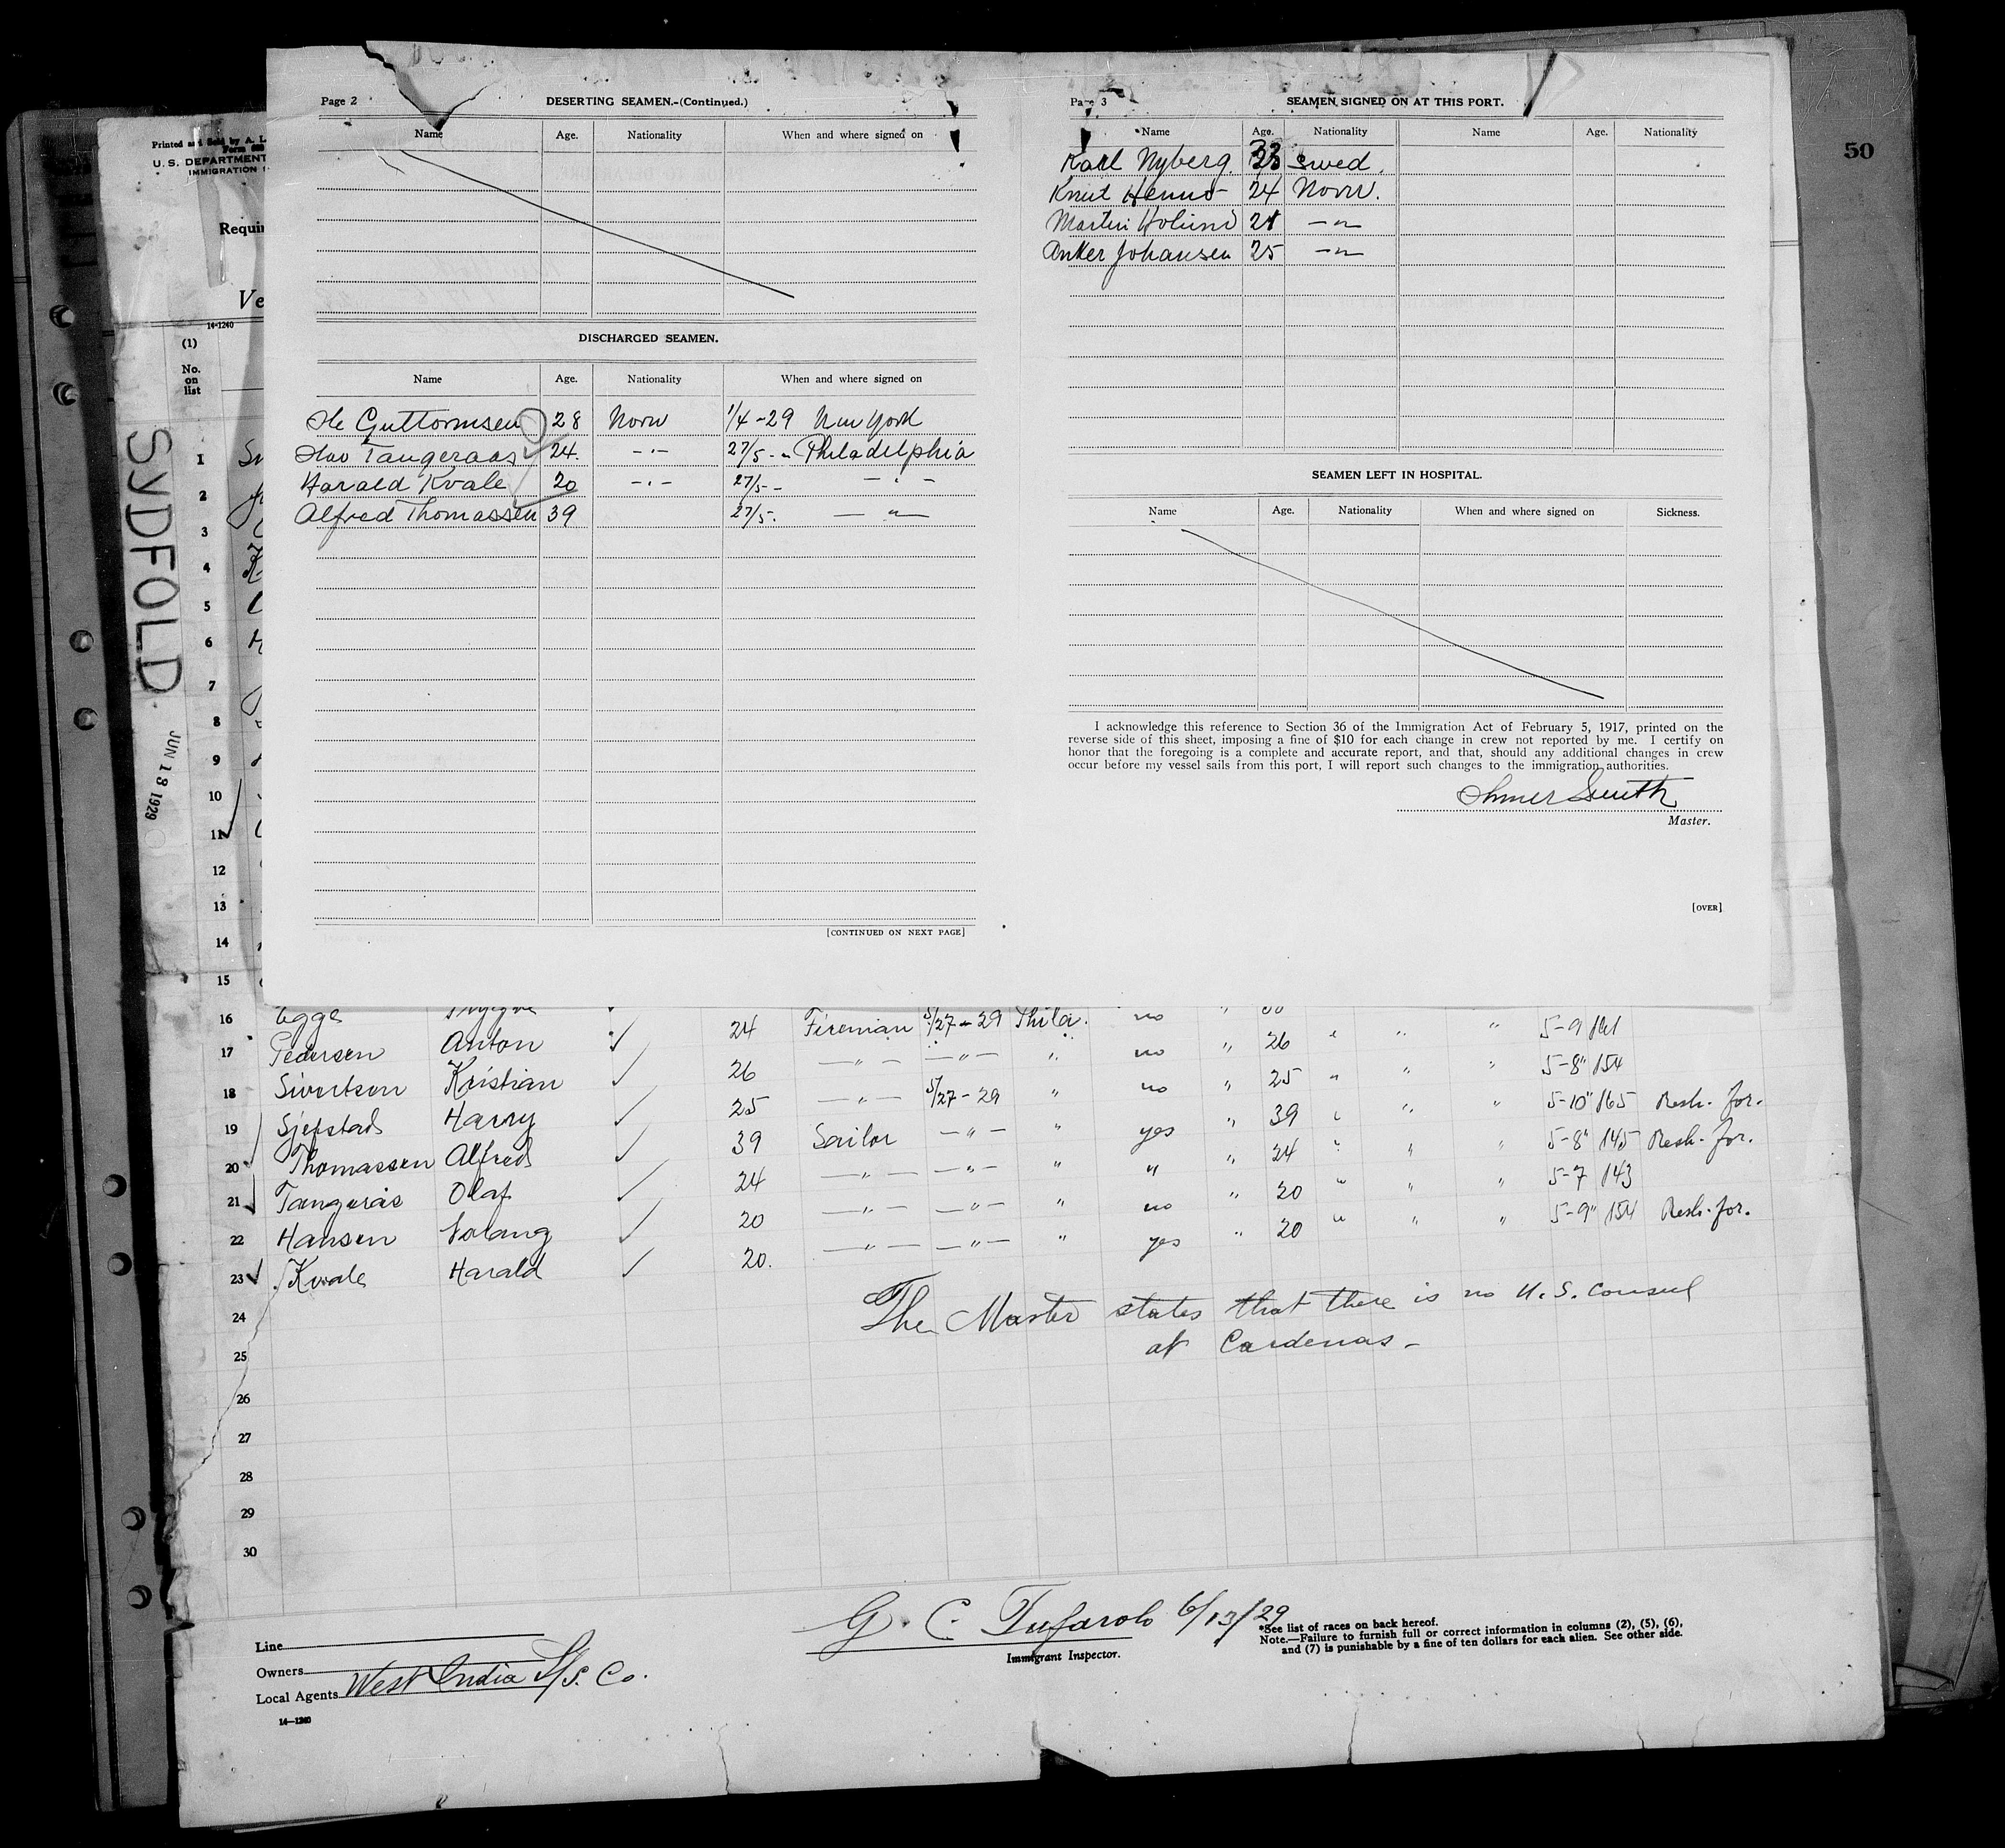 50
Printed and Sold by A. L.
U. S. DEPARTMENT
IMMIGRATION
Requir
Ve
14-1240
(1)
No.
on
list
SYDFOLD
JUN 13 1929
1
2
3
4
5
6
7
8
9
10
11
12
13
14
15
Page 2
DESERTING SEAMEN.-(Continued.)
Name Age. Nationality When and where signed on
DISCHARGED SEAMEN.
Name Age. Nationality When and where signed on
Guttormsen 28 Norw 1/4 - 29 New York
Tangeraas 24. -"- 27/5 - " Philadelphia
Harald Kvale 20 -"- 27/5 - - " -
Alfred Thomassen 39 27/5. - " -
[CONTINUED ON NEXT PAGE]
Page 3
SEAMEN SIGNED ON AT THIS PORT.
Name Age. Nationality Name Age. Nationality
Karl Nyberg. 33 Swed.
Knut 24 Norw.
Martin 21 -"-
Anker Johansen 25 -"-
SEAMEN LEFT IN HOSPITAL.
Name Age. Nationality When and where signed on Sickness.
I acknowledge this reference to Section 36 of the Immigration Act of February 5, 1917, printed on the
reverse side of this sheet, imposing a fine of $10 for each change in crew not reported by me. I certify on
honor that the foregoing is a complete and accurate report, and that, should any additional changes in crew
occur before my vessel sails from this port, I will report such changes to the immigration authorities.
Smith
Master.
[OVER]
16 Egge no "
17 Pedersen Anton 24 Fireman 5/27 - 29 Phila. no " 26 " " " 5-9 161
18 Sivertsen Kristian 26 -"- -"- " no " 25 " " " 5-8" 154
19 Sjefstad Harry 25 -"- 5/27 - 29 " yes " 39 " " " 5-10" 165 Resh. for.
20 Thomassen Alfred 39 Sailor -"- " " " 24 " " " 5-8" 145 Resh. for.
21 Tangerås Olaf 24 -"- -"- " no " 20 " " " 5-7 143
22 Hansen 20 -"- -"- " yes " 20 " " " 5-9" 154 Resh. for.
23 Kvale Harald 20. -"- -"- "
24 The Master states that there is no U.S. Consul
25 at Cardenas -
26
27
28
29
30
G. C. Tufarolo 6/13/29
Immigrant Inspector.
*See list of races on back hereof.
Note.—Failure to furnish full or correct information in columns (2), (5), (6),
and (7) is punishable by a fine of ten dollars for each alien. See other side.
Line
Owners
Local Agents West India S/S. Co.
14—1240